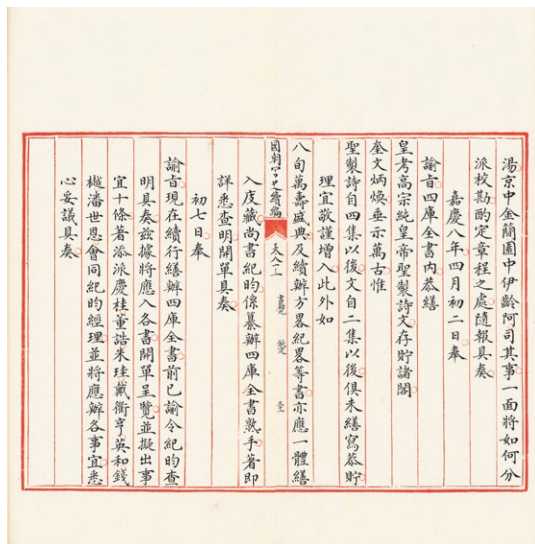 湯京中金簡圖中伊齡阿司其事一面將如何分
派校勘酌定章程之處隨報具奏
嘉慶八年四月初二日奉
諭旨四庫全書內恭繕
皇考高宗純皇帝聖製詩文存貯諸閣
奎文炳煥垂示萬古惟
聖製詩自四集以後文自二集以後俱未繕寫恭貯
理宜敬謹增入此外如
八旬萬壽盛典及續辦方畧紀畧等書亦應一體繕
國朝宮史續編
卷八十三
書籍九
入庋藏尚書紀昀係纂辦四庫全書熟手著即
詳悉查明開單具奏
初七日奉
諭旨現在續行繕辦四庫全書前已諭令紀昀查
明具奏茲據將應入各書開單呈覽並擬出事
宜十條著添派慶桂董誥朱珪戴衢亨英和錢
樾潘世恩會同紀昀經理並將應辦各事宜悉
心妥議具奏